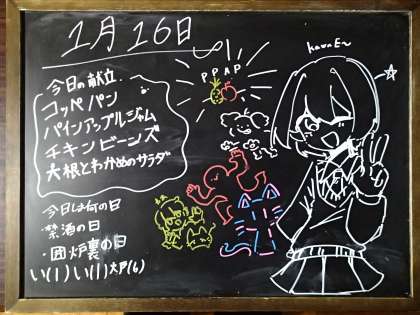 1月16日
今日の献立
コッペパン
パインアップルジャム
チキンビーンズ
大根とわかめのサラダ
PPAP
kawaE~
今日は何の日
・禁酒の日
・囲炉裏の日
い(1)い(1)大戸(6)